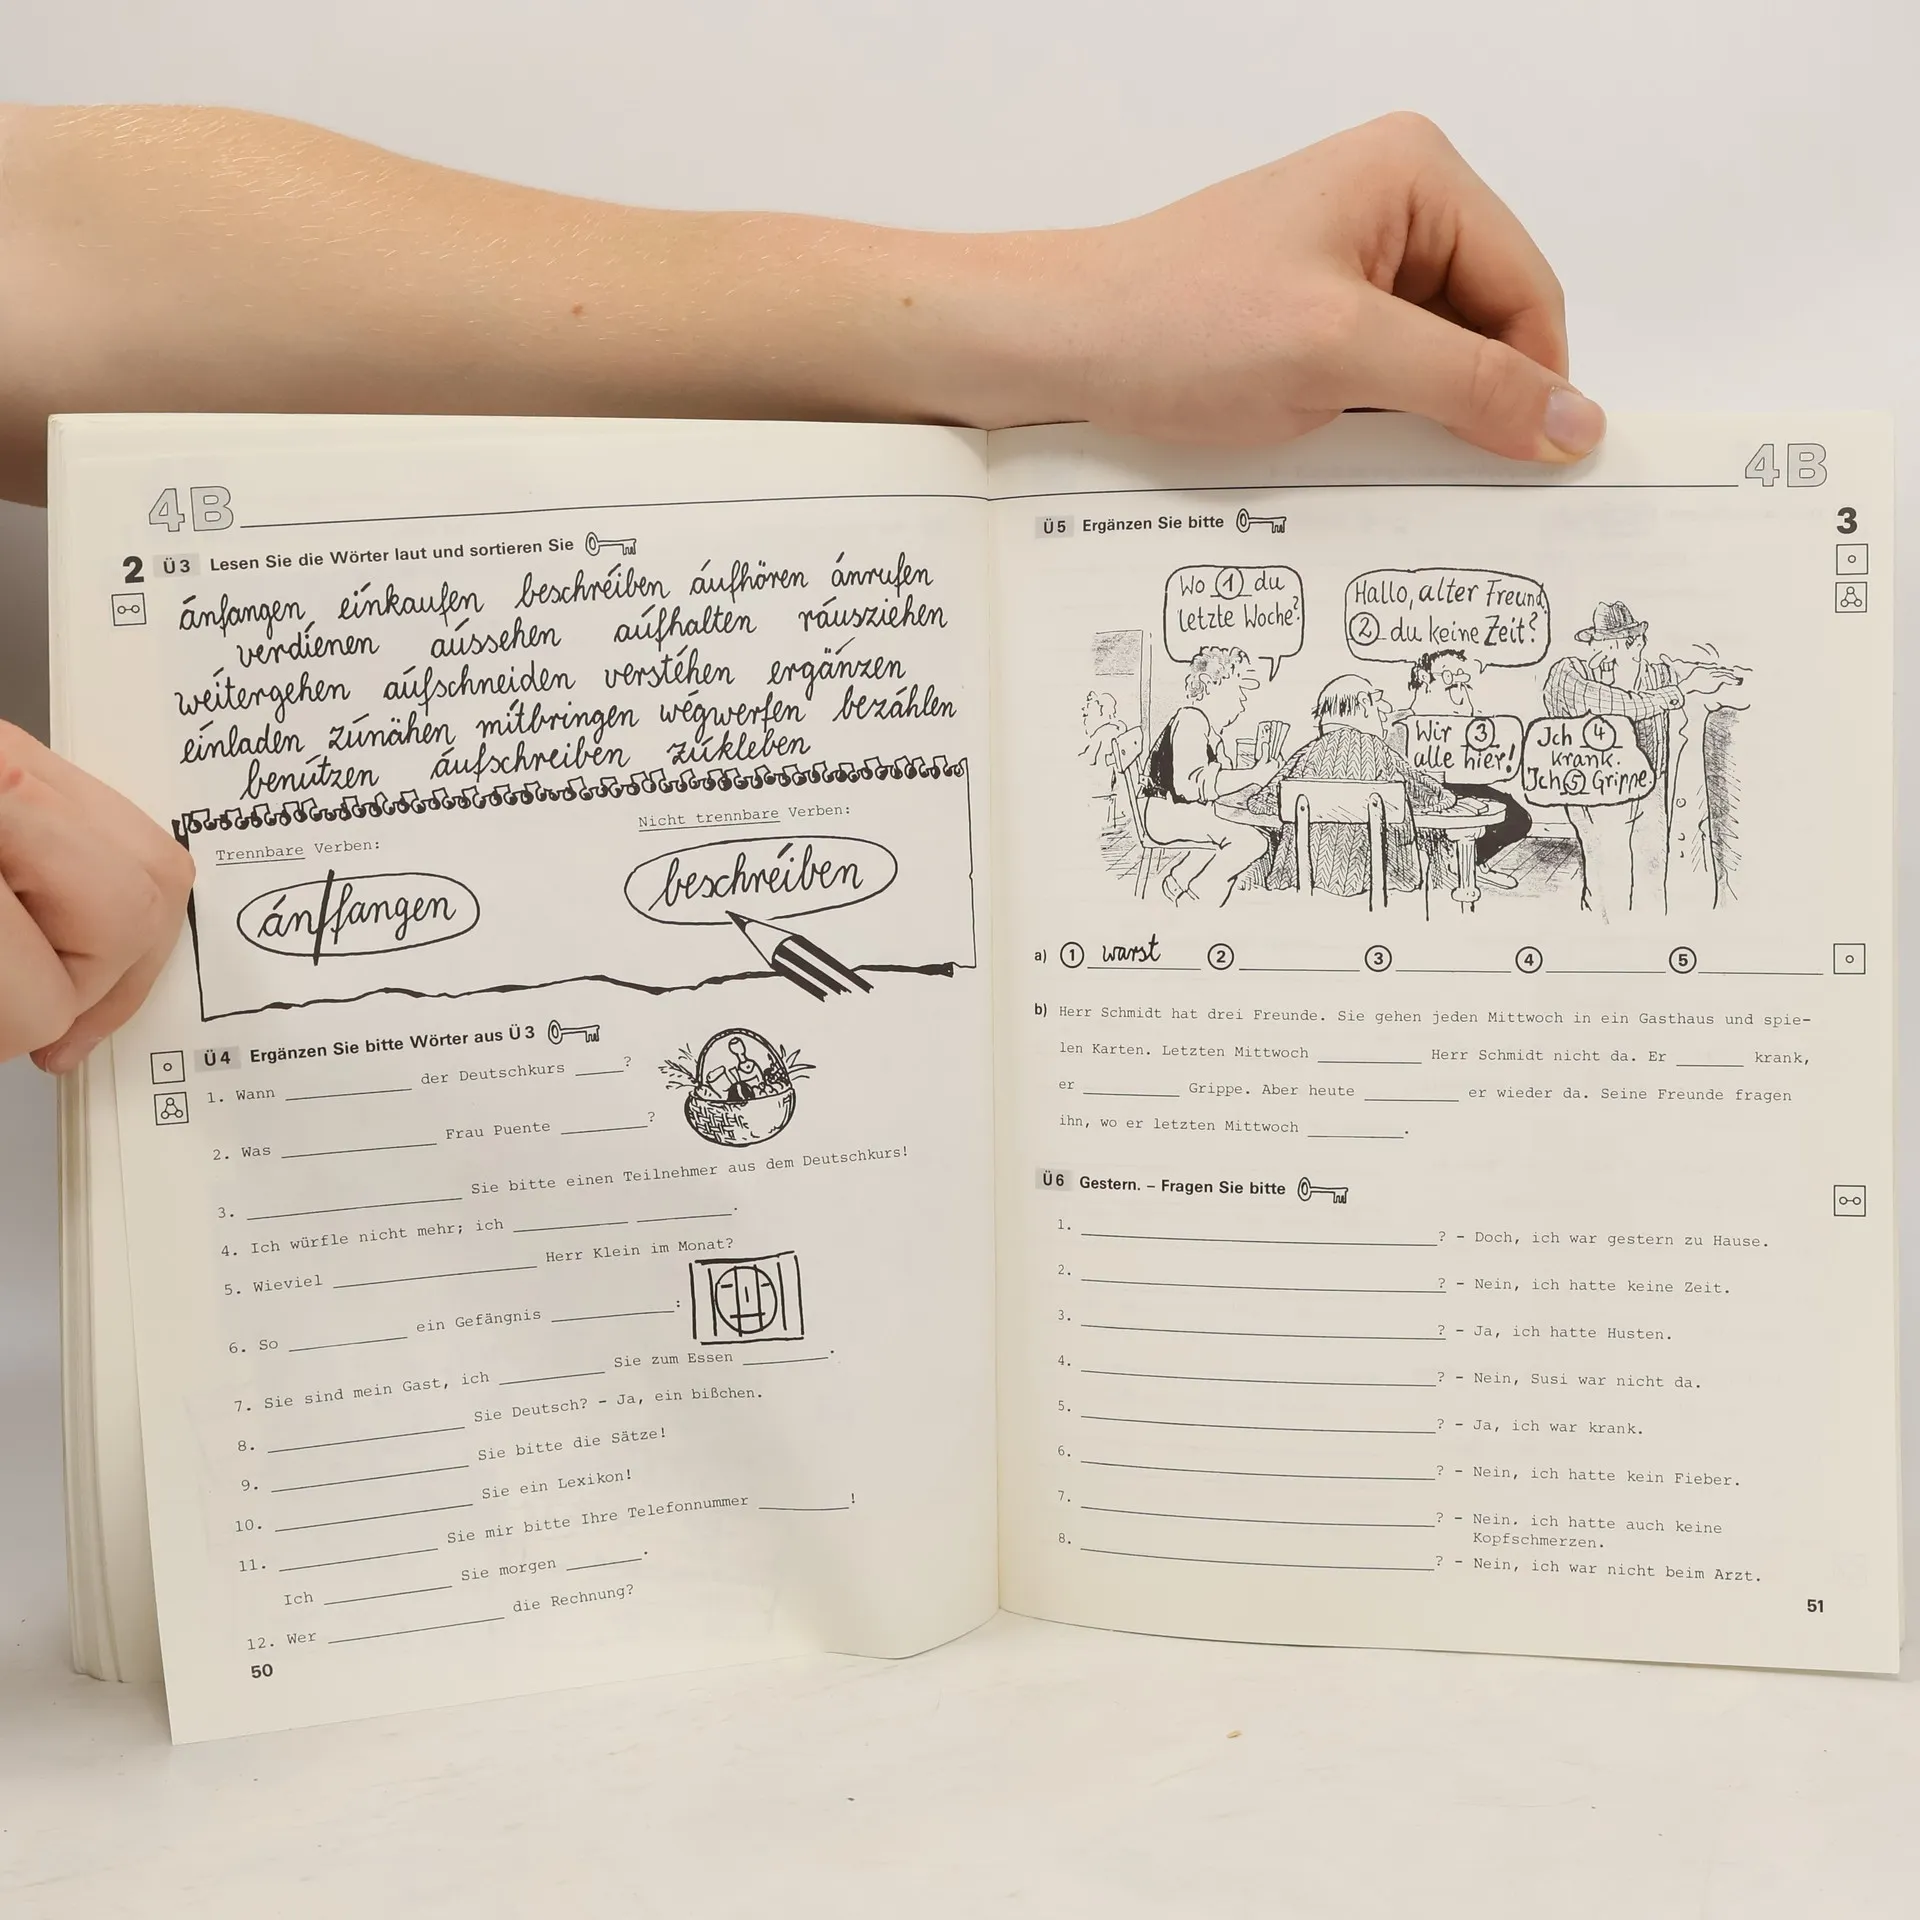 4B
2 Ü3 Lesen Sie die Wörter laut und sortieren Sie
ánfangen eínkaufen beschréiben áufhören ánrufen
verdíenen aússehen aúfhalten ráusziehen
weítergehen aúfschneiden verstéhen ergänzen
eínladen zúnähen mítbringen wégwerfen bezáhlen
benútzen áufschreiben zúkleben
Trennbare Verben:
Nicht trennbare Verben:
án/fangen
beschréiben
Ü4 Ergänzen Sie bitte Wörter aus Ü3
1. Wann ________ der Deutschkurs ____?
2. Was ________ Frau Puente ____?
3. ________ Sie bitte einen Teilnehmer aus dem Deutschkurs!
4. Ich würfle nicht mehr; ich ________ ________.
5. Wieviel ________ Herr Klein im Monat?
6. So ________ ein Gefängnis ________:
7. Sie sind mein Gast, ich ________ Sie zum Essen ________.
8. ________ Sie Deutsch? - Ja, ein bißchen.
9. ________ Sie bitte die Sätze!
10. ________ Sie ein Lexikon!
11. ________ Sie mir bitte Ihre Telefonnummer ________!
Ich ________ Sie morgen ________.
12. Wer ________ die Rechnung?
50
4B
3
Ü5 Ergänzen Sie bitte
Wo ① du
letzte Woche?
Hallo, alter Freund,
② du keine Zeit?
Wir ③
alle hier!
Ich ④
krank.
Ich ⑤ Grippe.
a) ① warst ② ________ ③ ________ ④ ________ ⑤ ________
b) Herr Schmidt hat drei Freunde. Sie gehen jeden Mittwoch in ein Gasthaus und spie-
len Karten. Letzten Mittwoch ________ Herr Schmidt nicht da. Er ________ krank,
er ________ Grippe. Aber heute ________ er wieder da. Seine Freunde fragen
ihn, wo er letzten Mittwoch ________.
Ü6 Gestern. – Fragen Sie bitte
1. ________? - Doch, ich war gestern zu Hause.
2. ________? - Nein, ich hatte keine Zeit.
3. ________? - Ja, ich hatte Husten.
4. ________? - Nein, Susi war nicht da.
5. ________? - Ja, ich war krank.
6. ________? - Nein, ich hatte kein Fieber.
7. ________? - Nein. ich hatte auch keine
Kopfschmerzen.
8. ________? - Nein, ich war nicht beim Arzt.
51